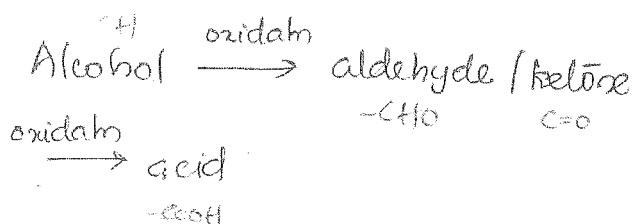 H
Alcohol oxidatn → aldehyde / ketone
-CHO C=O
oxidatn → acid
-COOH